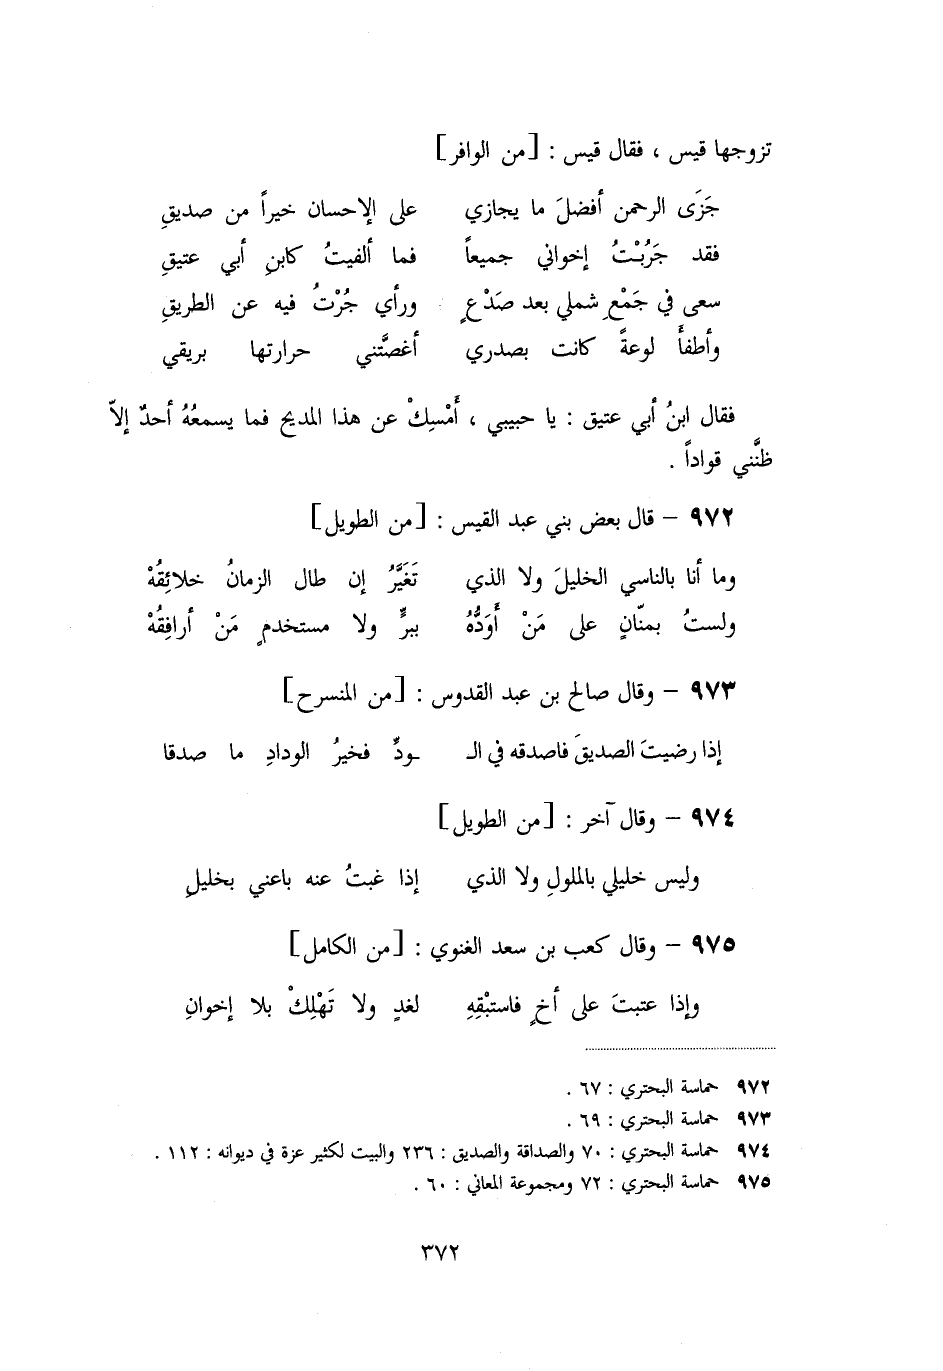 تزوجها قيس ، فقال قيس : [من الوافر]
جَزَى الرحمن أفضلَ ما يجازي على الإحسان خيراً من صديقِ
فقد جَرَّبْتُ إخواني جميعاً فما ألفيتُ كابنِ أبي عتيقِ
سعى في جَمْعِ شملي بعد صَدْعٍ ورأي جُرْتُ فيه عن الطريقِ
وأطفأَ لوعةً كانت بصدري أغصَّتني حرارتها بريقي
فقال ابنُ أبي عتيق : يا حبيبي ، أَمْسِكْ عن هذا المديح فما يسمعُهُ أحدٌ إلاّ
ظنَّني قواداً .
٩٧٢ – قال بعض بني عبد القيس : [من الطويل]
وما أنا بالناسي الخليلَ ولا الذي تَغَيَّرُ إن طال الزمانُ خلائِقُهْ
ولستُ بمنّانٍ على مَنْ أَوَدُّهُ ببرٍّ ولا مستخدمٍ مَنْ أرافِقُهْ
٩٧٣ – وقال صالح بن عبد القدوس : [من المنسرح]
إذا رضيتَ الصديقَ فاصدقه في الـ ـودِّ فخيرُ الودادِ ما صدقا
٩٧٤ – وقال آخر : [من الطويل]
وليس خليلي بالملولِ ولا الذي إذا غبتُ عنه باعني بخليلِ
٩٧٥ – وقال كعب بن سعد الغنوي : [من الكامل]
وإذا عتبتَ على أخٍ فاستبْقِهِ لغدٍ ولا تَهْلِكْ بلا إخوانِ
٩٧٢ حماسة البحتري : ٦٧ .
٩٧٣ حماسة البحتري : ٦٩ .
٩٧٤ حماسة البحتري : ٧٠ والصداقة والصديق : ٢٣٦ والبيت لكثير عزة في ديوانه : ١١٢ .
٩٧٥ حماسة البحتري : ٧٢ ومجموعة المعاني : ٦٠ .
٣٧٢